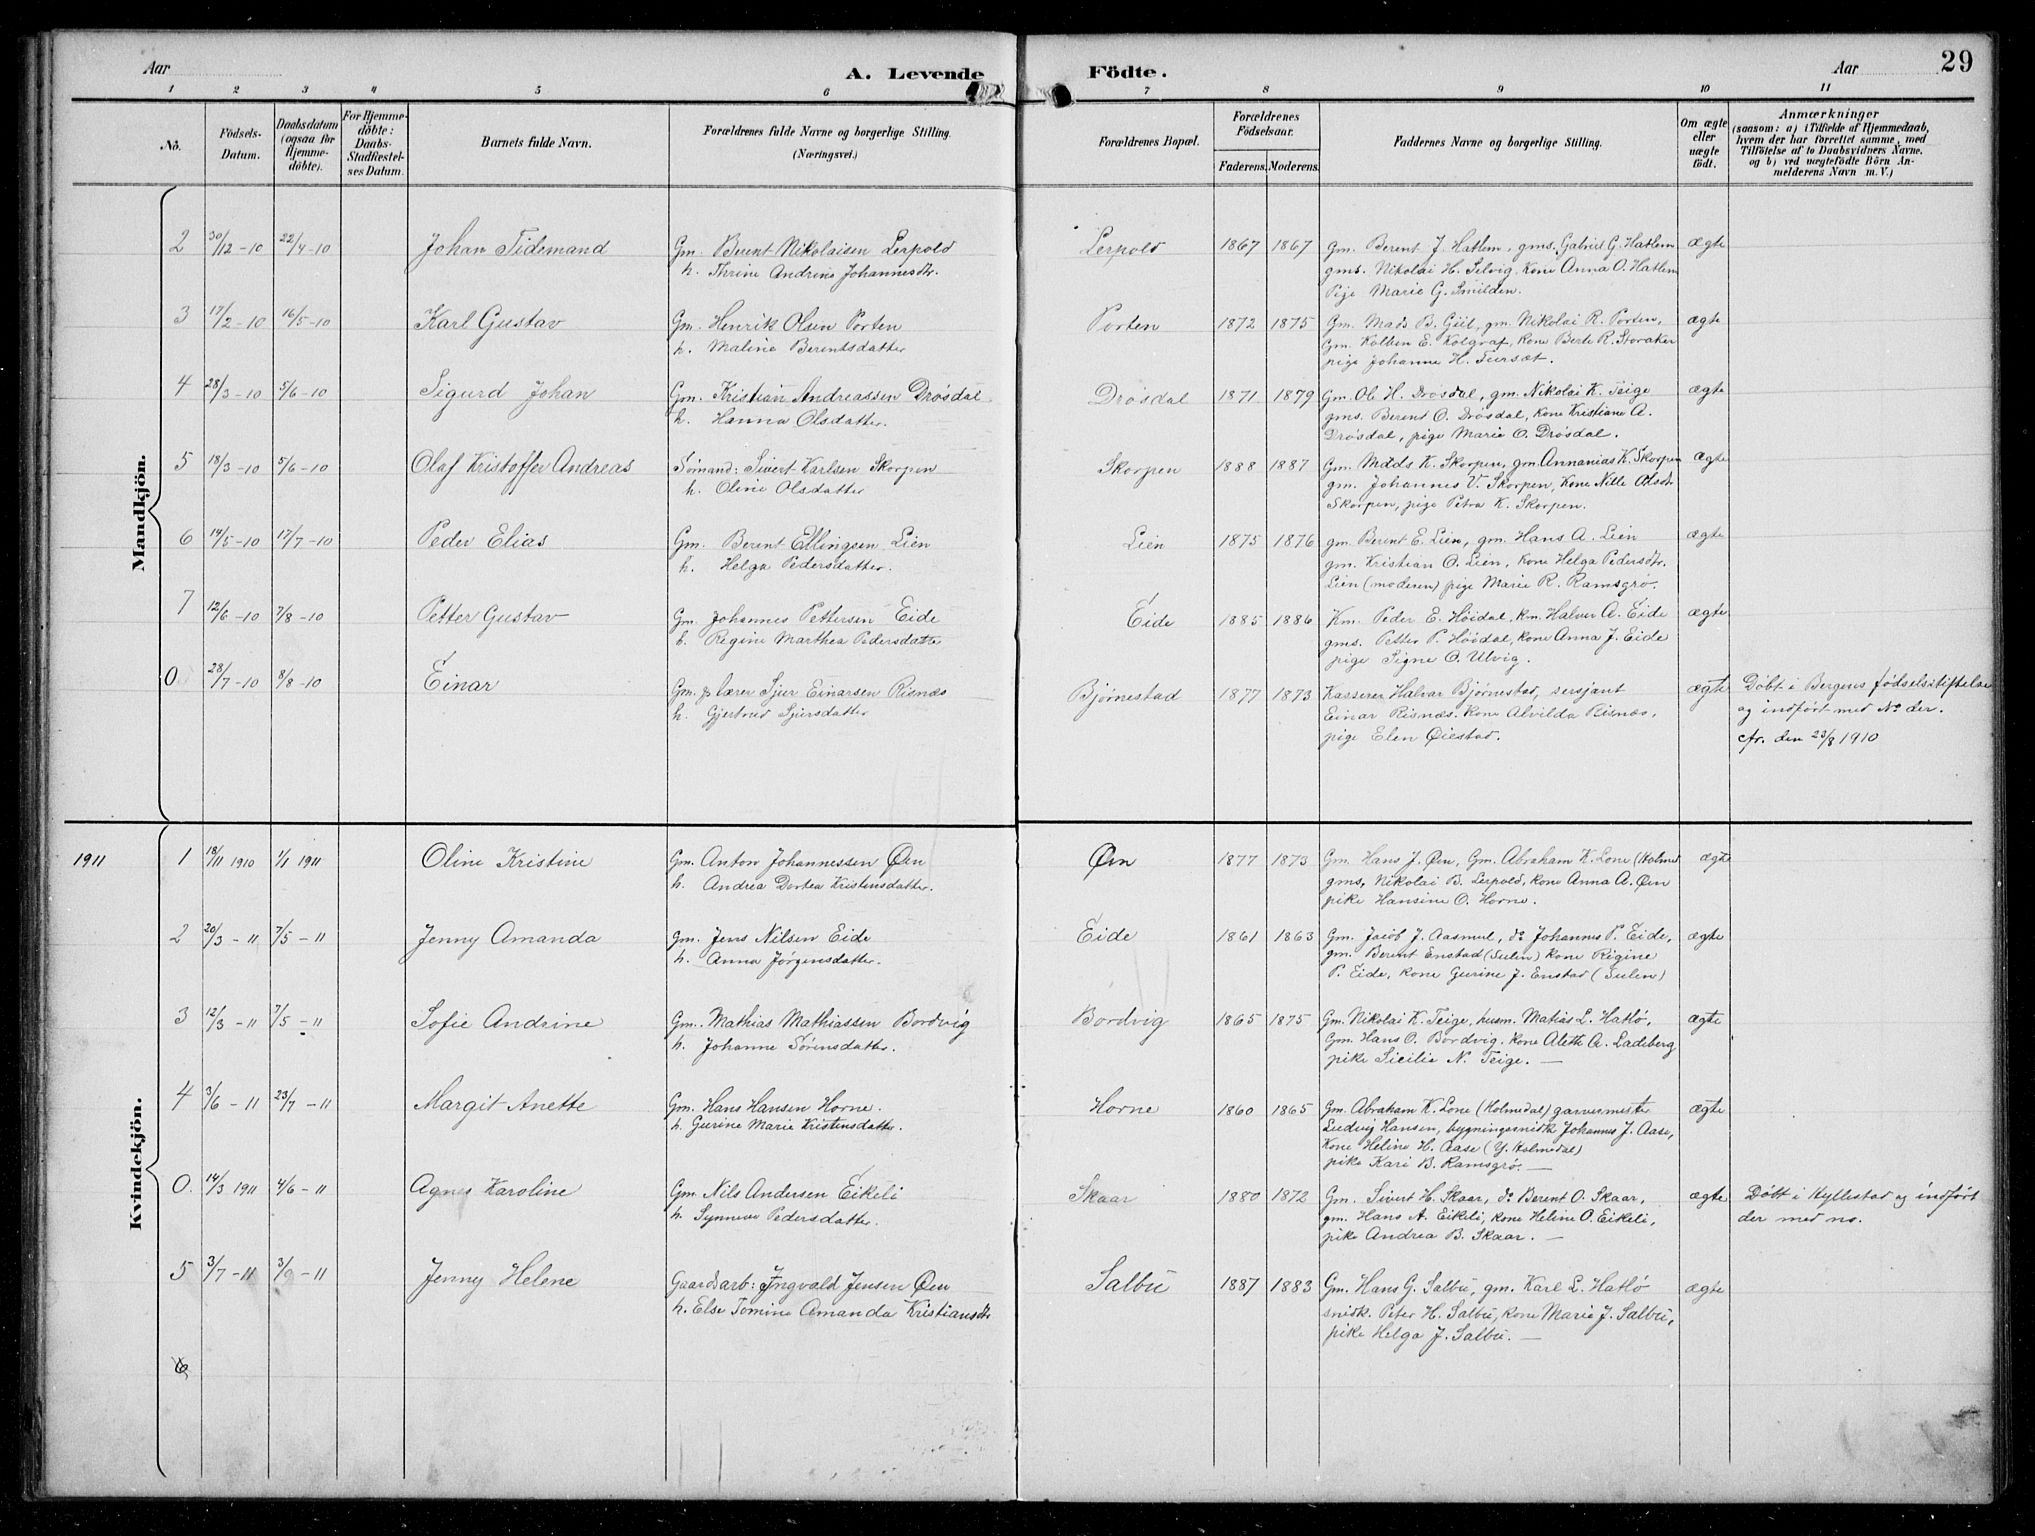 Aar
A. Levende Födte.
Aar
29
1 2 3 4 5 6 7 8 9 10 11
No.
Födsels-Datum.
Daabsdatum (ogsaa for Hjemme-döbte).
For Hjemme-döbte: Daabs-Stadfæstel-ses Datum.
Barnets fulde Navn.
Forældrenes fulde Navne og borgerlige Stilling. (Næringsvei.)
Forældrenes Bopæl.
Forældrenes Födselsaar.
Faderens. Moderens.
Faddernes Navne og borgerlige Stilling.
Om ægte eller uægte födt.
Anmærkninger
(saasom: a) i Tilfælde af Hjemmedaab, hvem der har forrettet samme, med Tilföielse af to Daabsvidners Navne. og b) ved uægtefödte Börn An-melderens Navn m. V.)
Mandkjön.
2 30/12-10 22/4-10 Johan Tidemand Gm. Berent Nikolaisen Lerpold Lerpold 1867 1867 Gm. Berent J. Hatlem, gms. Gabriel G. Hatlem ægte
h. Thrine Andrine Johannesdtr. gms. Nikolai H. Selvig, Kone Anna O. Hatlem
Pige Marie G. Smilden.
3 17/2-10 16/5-10 Karl Gustav Gm. Henrik Olsen Porten Porten 1872 1875 Gm. Mads B. Gül, gm. Nikolai R. Porten, ægte
h. Maline Berentsdatter Gm. Kolben E. Kolgraf, Kone Berte R. Storaker
pige Johanne H. Tursæt.
4 28/3-10 5/6-10 Sigurd Johan Gm. Kristian Andreassen Drøsdal Drøsdal 1871 1879 Gm. Ol. H. Drøsdal, gm. Nikolai K. Teige ægte
h. Hanna Olsdatter. gms. Berent O. Drøsdal, Kone Kristiane A.
Drøsdal, pige Marie O. Drøsdal.
5 18/3-10 5/6-10 Olaf Kristoffer Andreas Sømand: Sivert Karlsen Skorpen Skorpen 1888 1887 Gm. Mads K. Skorpen, gm. Annanias K. Skorpen ægte
h. Oline Olsdatter gm. Johannes V. Skorpen, Kone Nille Olsdtr
Skorpen, pige Petra K. Skorpen.
6 14/5-10 17/7-10 Peder Elias Gm. Berent Ellingsen Lien Lien 1875 1876 gm. Berent E. Lien, gm. Hans A. Lien ægte
h. Helga Pedersdatter. gm. Kristian O. Lien, Kone Helga Pedersdtr.
Lien (moderen) pige Marie R. Ramsgrø.
7 12/6-10 7/8-10 Petter Gustav Gm. Johannes Pettersen Eide Eide 1885 1886 Km. Peder E. Høidal, Km. Halvor A. Eide ægte
h. Regine Marthea Pedersdatte gms. Petter P. Høidal, Kone Anna J. Eide
pige Signe O. Ulvig.
0 28/7-10 8/8-10 Einar Gm. & lærer Sjur Einarsen Risnæs Bjørnestad 1877 1873 Kasserer Halvar Bjørnestad, sersjant ægte Döbt i Bergens födselsstiftelse
h. Gjertrud Sjursdatter Einar Risnæs. Kone Alvilda Risnæs, og indført med No der.
pige Elen Øiestad. cfr. den 23/8 1910
Kvindekjön.
1911 1 18/11 1910 1/1 1911 Oline Kristine Gm. Anton Johannessen Øen Øen 1877 1873 Gm. Hans J. Øen, Gm. Abraham K. Lone (Holmed ægte
h. Andrea Dortea Kristensdatter. gms, Nikolai B. Lerpold, Kone Anna A. Øen
pike Hansine O. Horne.
2 20/3-11 7/5-11 Jenny Amanda Gm. Jens Nilsen Eide Eide 1861 1863 Gm. Jacob J. Aasmul, do Johannes P. Eide, ægte
h. Anna Jørgensdatter. gm. Berent Enstad (Sulen) Kone Regine
P. Eide, Kone Gurine J. Enstad (Sulen)
3 12/3-11 7/5-11 Sofie Andrine Gm. Mathias Mathiassen Bordvig Bordvig 1865 1875 Gm. Nikolai K. Teige, husm. Matias L. Hatlø, ægte
h. Johanne Sørensdatter. Gm. Hans O. Bordvig, Kone Aleth A. Ladeberg
pike Sicilie N. Teige.—
4 3/6-11 23/7-11 Margit Anette Gm. Hans Hansen Horne. Horne 1860 1865 Gm. Abraham K. Lone (Holmedal) garvermester ægte
h. Gurine Marie Kristensdatter. Ludvig Hansen, bygningssnidk Johannes J. Aase,
Kone Heline H. Aase (Y. Holmedal)
pike Kari B. Ramsgrø.—
0. 14/3 1911 4/6-11 Agnes Karoline Gm. Nils Andersen Eikeli Skaar 1880 1872 Gm. Sivert H. Skaar, do Berent O. Skaar, ægte Döbt i Hyllestad og indført
h. Synneve Pedersdatter. gm. Hans A. Eikeli, Kone Heline O. Eikeli, der med no.
pike Andrea B. Skaar.—
5 3/7-11 3/9-11 Jenny Helene Gaardsarb: Ingvald Jensen Øen Salbu 1887 1883 Gm. Hans G. Salbu, gm. Karl L. Hatlø ægte
h. Else Tomine Amanda Kristiansdtr snidk. Peter H. Salbu, Kone Marie J. Salbu,
pike Helga J. Salbu.—
6